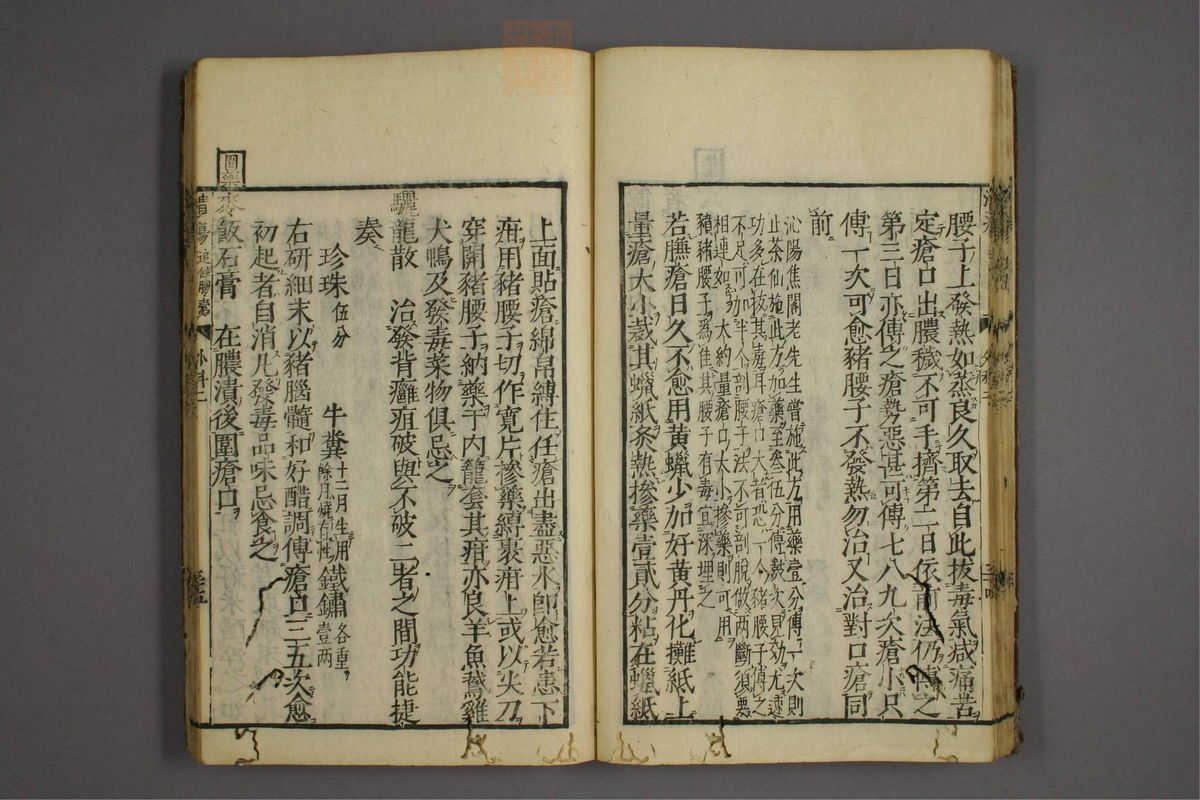 腰子上發熱如蒸良久取去自此拔毒氣减痛苦
定瘡口出膿穢不可手擠第二日依前法仍傳之
第三日亦傅之瘡勢惡甚可傅七八九次瘡小只
傅一次可愈豬腰子不發熱勿治又治對口瘡同
前
沁陽焦閣老先生嘗施此方用藥壹分傅一次則
止茶仙施此方加藥至叁伍分傅數次見効尤速
功多在拔其毒耳瘡口大者恐一个豬腰子傅之
不足可加半个剖腰子法不可剖脫做两斷須要
相連如 大約量瘡口大小摻藥則可用
豶豬腰子爲佳其腰子有毒宜深埋之
若臁瘡日久不愈用黄蠟少加好黄丹化攤紙上
量瘡大小裁其蠟紙炙熱摻藥壹貳分粘在蠟紙
上面貼瘡綿帛縛住任瘡出盡惡水卽愈若患下
疳用豬腰子切作寬片摻藥縛裹疳上或以尖刀
穿開豬腰子納藥于内籠套其疳亦良羊魚鵞雞
犬鴨及發毒菜物俱忌之
驪龍散 治發背癰疽破與不破二者之間功能捷
奏
珍珠伍分 牛糞十二月生用餘月燒存性 鐵鏽各重壹两
右研細末以豬腦髓和好醋調傅瘡口三五次愈
初起者自消凡發毒品味忌食之
圍藥麥飯石膏 在膿潰後圍瘡口